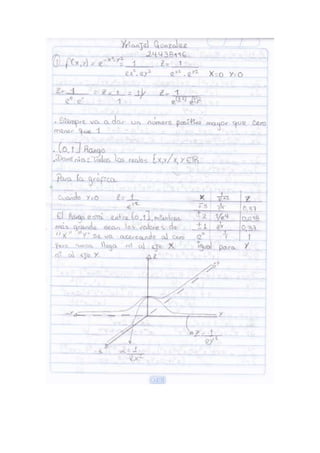 Yriangel Gonzalez
24438496
① f(x,y) = e^-x²-y² = 1 z= 1
ex². ey² e^x² . e^y² X=0 Y=0
z= 1 = z= 1 = 1 z= 1
e⁰. e⁰ 1
. Siempre va a dar un numero positivo mayor que cero
menor que 1
. (0, 1] Rango
. Dominio: Todos los reales {x,y / x,y ∈ R
Para la grafica
Cuando Y=0 z= 1 X z
e^x²
El Rango está entre (0,1] mientras ±2 0,018
más grande sean los valores de ±1 0,37
"X" "Y" se va acercando al cero 0 1 1
pero nunca llega ni al eje X igual para Y
ni al eje Y.
z
z= 1
ey²
-x z= 1
ex²